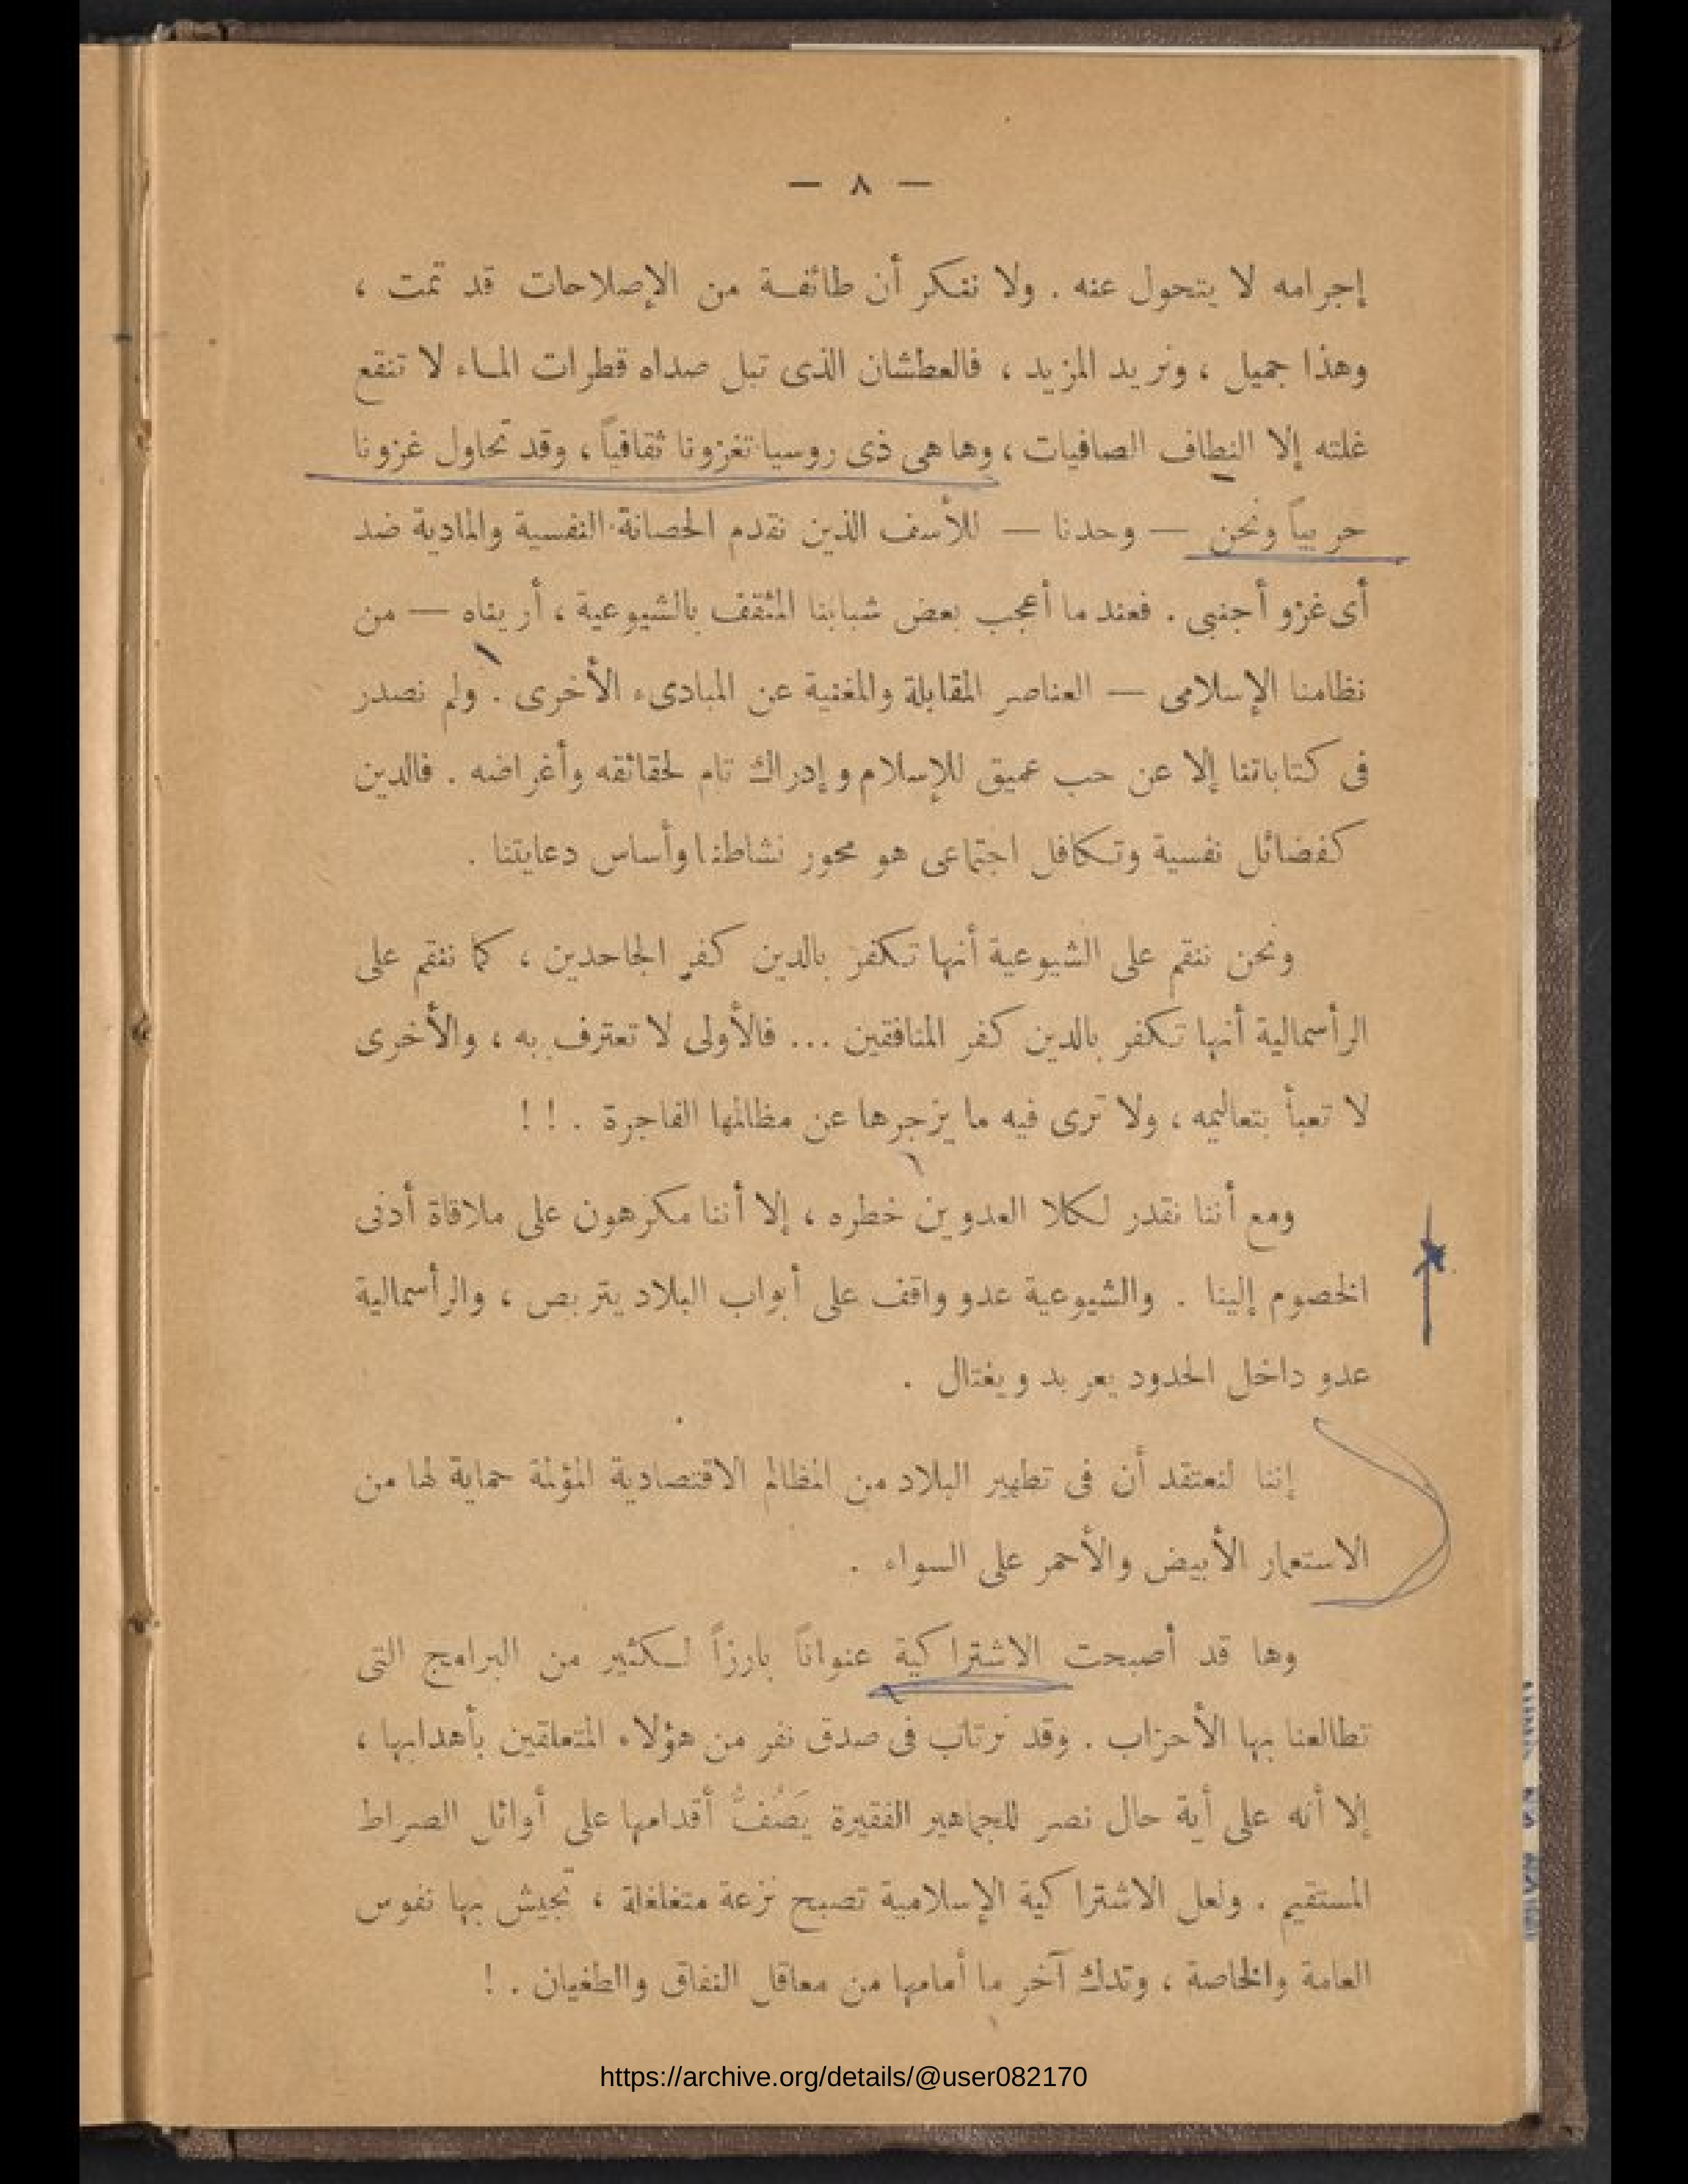 — ٨ —
إجرامه لا يتحول عنه . ولا ننكر أن طائفة من الإصلاحات قد تمت ،
وهذا جميل ، ونريد المزيد ، فالعطشان الذى تبل صداه قطرات الماء لا تنقع
غلته إلا النطاف الصافيات ، وها هى ذى روسيا تغزونا ثقافياً ، وقد تحاول غزونا
حربياً ونحن — وحدنا — للأسف الذين نقدم الحصانة النفسية والمادية ضد
أى غزو أجنبى . فعند ما أعجب بعض شبابنا المثقف بالشيوعية ، أريناه — من
نظامنا الإسلامى — العناصر المقابلة والمغنية عن المبادىء الأخرى . ولم نصدر
فى كتاباتنا إلا عن حب عميق للإسلام وإدراك تام لحقائقه وأغراضه . فالدين
كفضائل نفسية وتكافل اجتماعى هو محور نشاطنا وأساس دعايتنا .
ونحن ننقم على الشيوعية أنها تكفر بالدين كفر الجاحدين ، كما ننقم على
الرأسمالية أنها تكفر بالدين كفر المنافقين ... فالأولى لا تعترف به ، والأخرى
لا تعبأ بتعاليمه ، ولا ترى فيه ما يزجرها عن مظالمها الفاجرة . ! !
ومع أننا نقدر لكلا العدوين خطره ، إلا أننا مكرهون على ملاقاة أدنى
الخصوم إلينا . والشيوعية عدو واقف على أبواب البلاد يتربص ، والرأسمالية
عدو داخل الحدود يعربد ويغتال .
إننا لنعتقد أن فى تطهير البلاد من المظالم الاقتصادية المؤلمة حماية لها من
الاستعمار الأبيض والأحمر على السواء .
وها قد أصبحت الاشتراكية عنواناً بارزاً لكثير من البرامج التى
تطالعنا بها الأحزاب . وقد نرتاب فى صدق نفر من هؤلاء المتعلقين بأهدابها ،
إلا أنه على أية حال نصر للجماهير الفقيرة يَصُفُّ أقدامها على أوائل الصراط
المستقيم . ولعل الاشتراكية الإسلامية تصبح نزعة متغلغلة ، تجيش بها نفوس
العامة والخاصة ، وتدك آخر ما أمامها من معاقل النفاق والطغيان . !
https://archive.org/details/@user082170